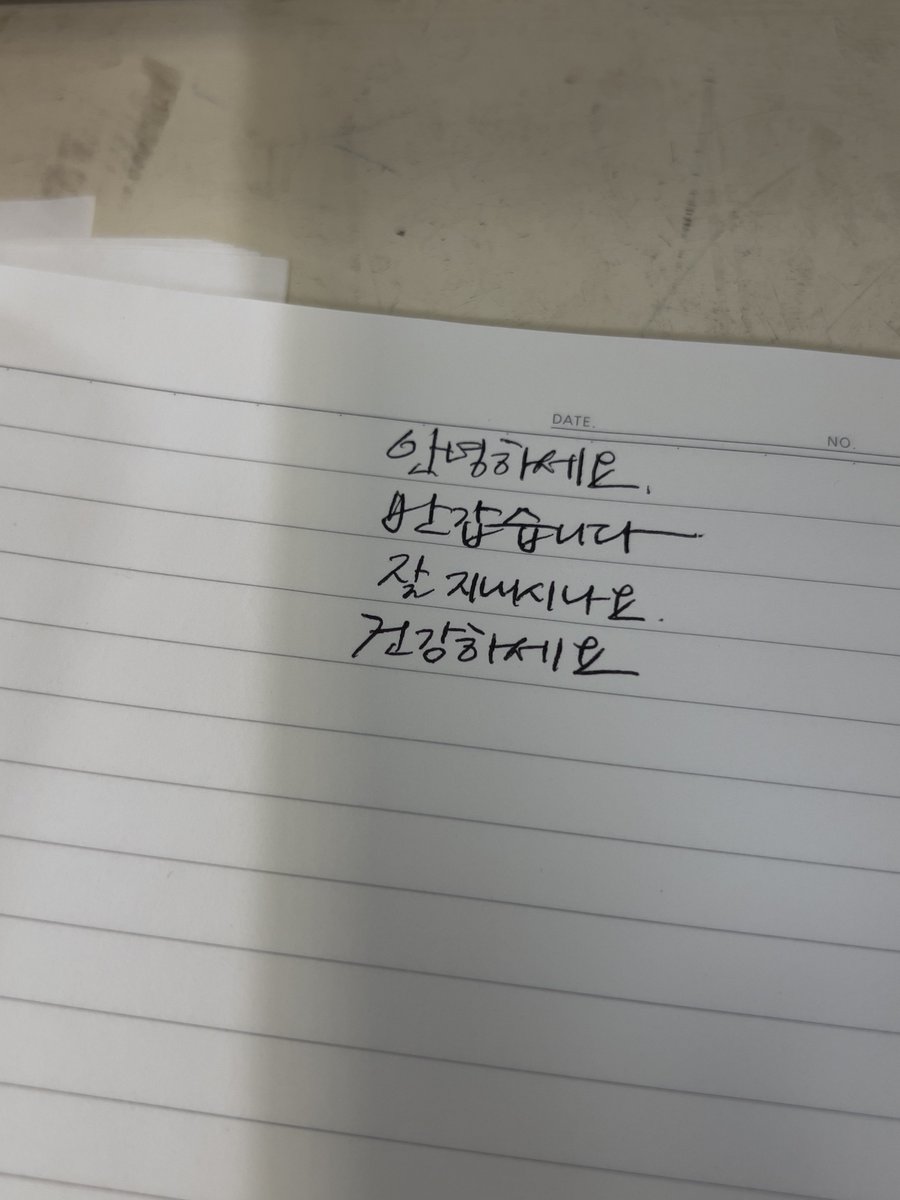 DATE.
NO.
안녕하세요.
반갑습니다
잘 지내시나요.
건강하세요